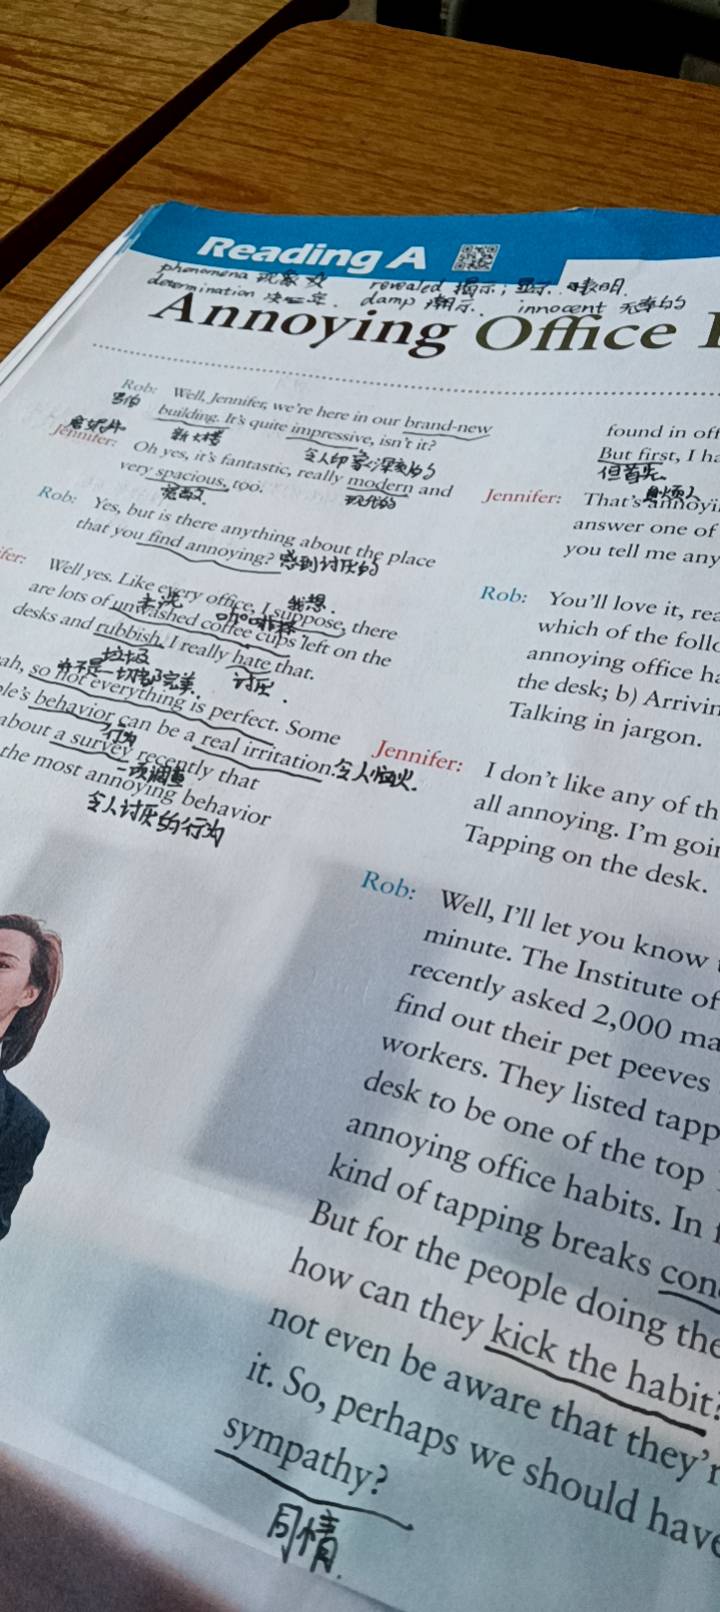 Reading A
phenomena 现象
revealed 揭示；显示．表明．
determination 决定．
damp 潮
innocent 无辜的
Annoying Office
Rob: Well, Jennifer, we're here in our brand-new
building. It's quite impressive, isn't it?
新大楼
令人印象深刻的
Jennifer: Oh yes, it's fantastic, really modern and
very spacious, too.
现代的
Rob: Yes, but is there anything about the place
that you find annoying? 感到讨厌的
ifer: Well yes. Like every office, I suppose, there
我想．
are lots of unwashed coffee cups left on the
未洗
咖啡杯
desks and rubbish. I really hate that.
垃圾
讨厌．
ah, so not everything is perfect. Some
并不是一切都完美．
le's behavior can be a real irritation. 令人恼火．
行为
about a survey recently that
一项调查
the most annoying behavior
令人讨厌的行为
found in off
But first, I ha
但首先
Jennifer: That's annoyi
烦人
answer one of
you tell me any
Rob: You'll love it, rea
which of the follo
annoying office ha
the desk; b) Arrivin
Talking in jargon.
Jennifer: I don't like any of th
all annoying. I'm goin
Tapping on the desk.
Rob: Well, I'll let you know
minute. The Institute of
recently asked 2,000 ma
find out their pet peeves
workers. They listed tapp
desk to be one of the top
annoying office habits. In
kind of tapping breaks con
But for the people doing the
how can they kick the habit?
not even be aware that they'r
it. So, perhaps we should have
sympathy?
同情．